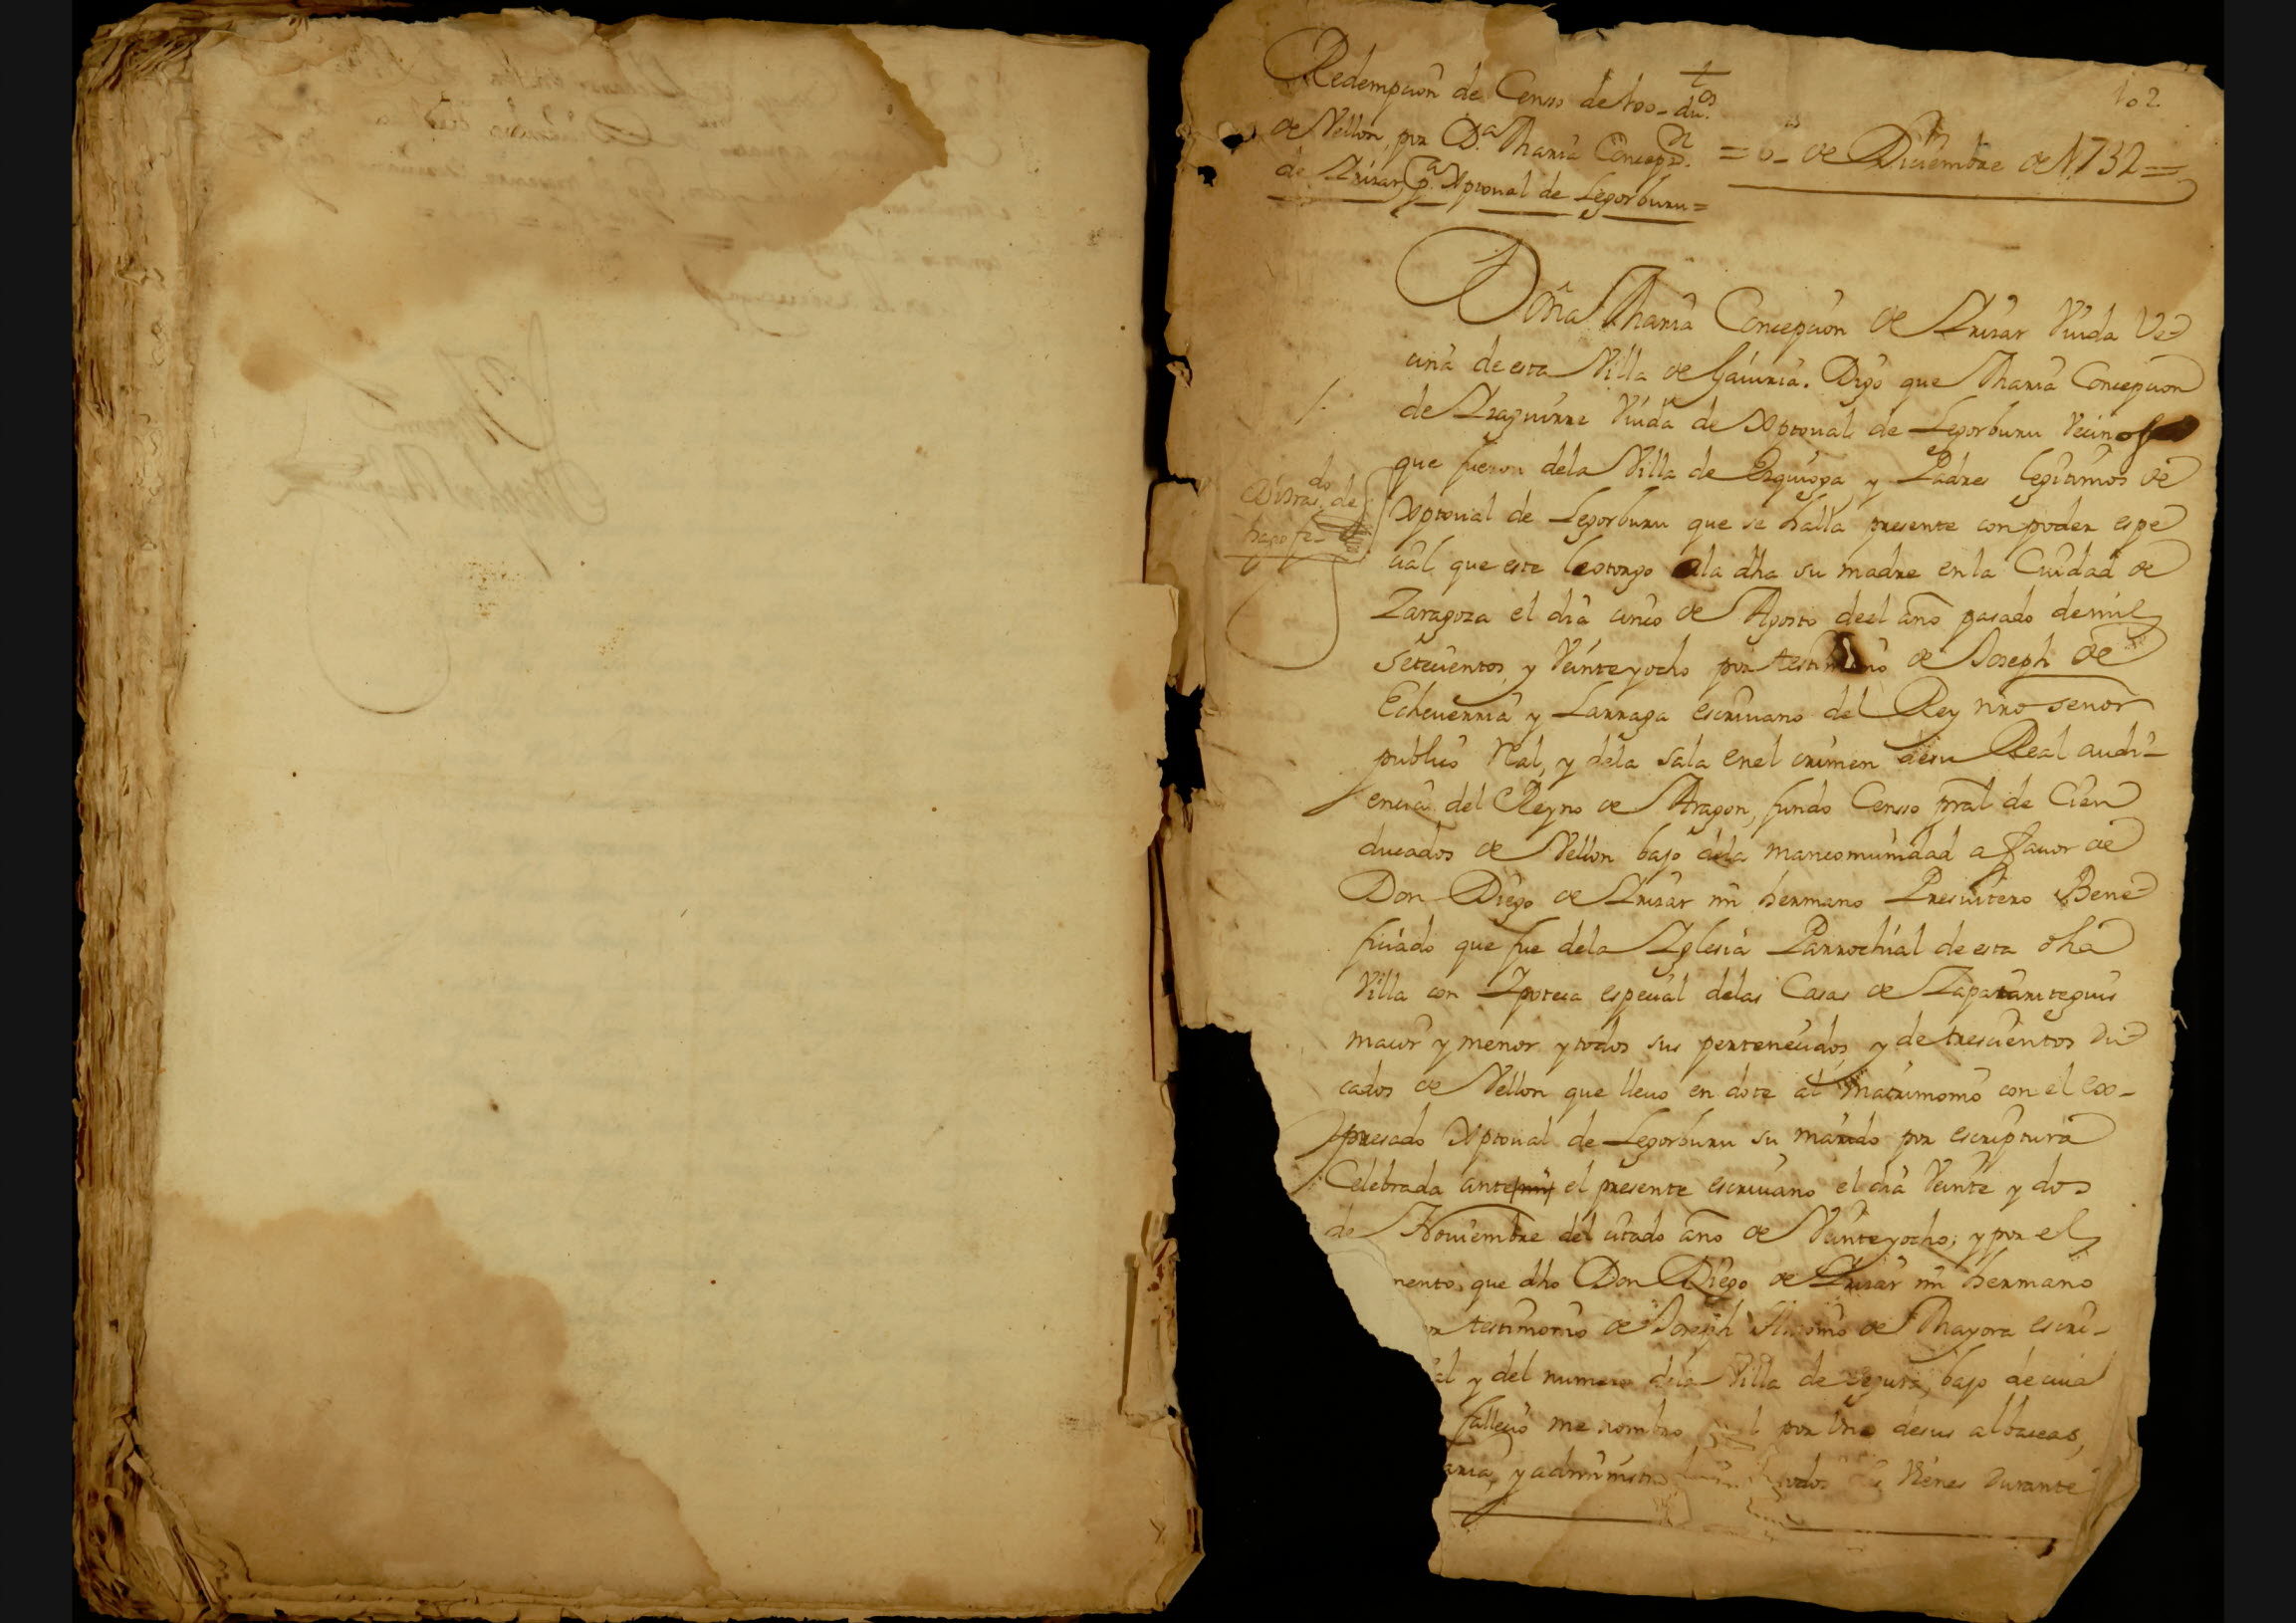 102
Redempcion de Censo de 100- du.os
de Vellon, por D.a Maria Concepn.
de Arizar, pa. Xptoual de Legorburu=
= 6- de Diciembre de 1732=
Doña Maria Concepcion de Arizar Viuda Ve-
cina de esta Villa de Gauiria. Digo que Maria Concepcion
de Izaguirre Viuda de Xptoual de Legorburu Vecinos
que fueron dela Villa de Ezquioga y Padres legitimos de
Xptoual de Legorburu que se halla presente con poder espe
cial que este le otorgo ala dha su madre en la Ciudad de
Zaragoza el dia cinco de Agosto deel año pasado de mil
Setecientos, y Veinte y ocho por testimonio de Joseph de
Echeuerria y Larraga escriuano del Rey nro señor
publico Ral, y dela sala enel crimen desu Real audi-
encia del Reyno de Aragon, fundo Censo pral de Cien
ducados de Vellon bajo dela mancomunidad a fauor de
Don Diego de Arizar mi hermano Presuitero Bene
ficiado que fue dela Iglesia Parrochial de esta dha
Villa con Ipoteca especial delas Casas de Zapatariteguis
maior y menor y todos sus pertenecidos, y de trescientos du
cados de Vellon que lleuo en dote al Matrimonio con el ex-
presado Xptoual de Legorburu su marido por escriptura
Celebrada ante el presente escriuano el dia Veinte y dos
de Nouiembre del citado año de Veinte y ocho; y por el
mento que dho Don Diego de Arizar mi hermano
testimonio de Joseph Antonio de Mayora escri-
al y del numero dela Villa de Segura, bajo de cuia
fallecio me nombro por Vno desus albaceas,
aria, y administra todos Vienes durante
Disras.do de
hago fe-